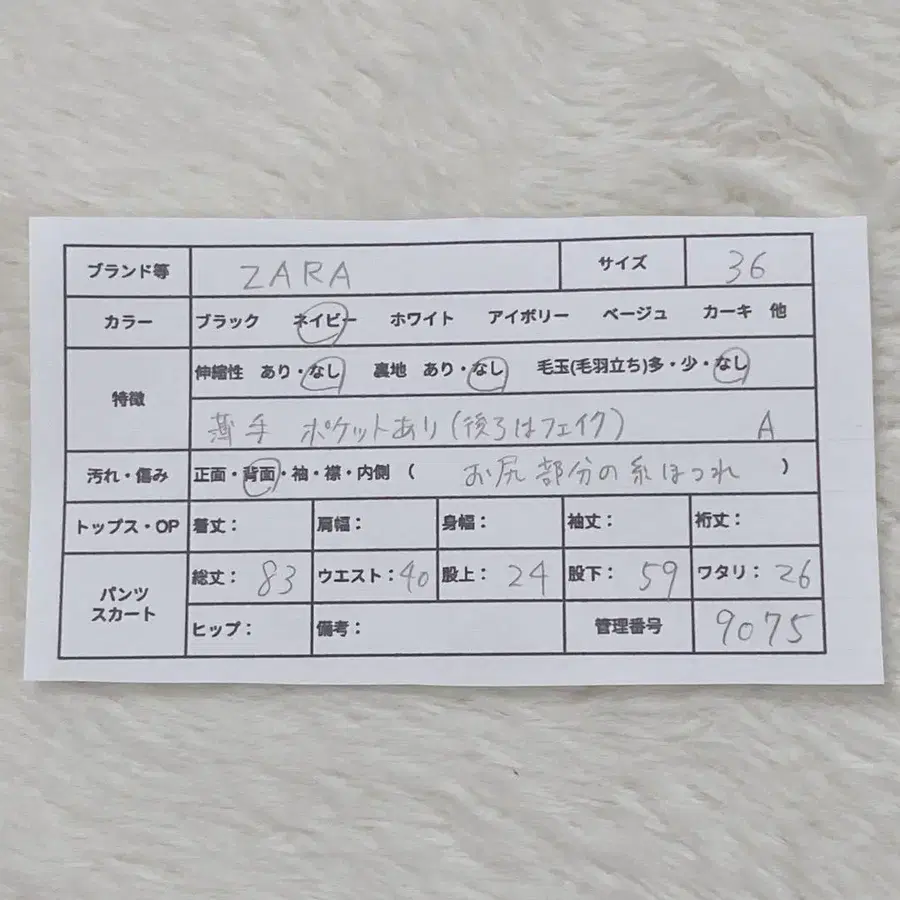 ブランド等 ZARA サイズ 36
カラー ブラック ネイビー ホワイト アイボリー ベージュ カーキ 他
特徴 伸縮性 あり・なし 裏地 あり・なし 毛玉(毛羽立ち)多・少・なし
薄手 ポケットあり(後ろはフェイク) A
汚れ・傷み 正面・背面・袖・襟・内側 ( お尻部分の糸ほつれ )
トップス・OP 着丈: 肩幅: 身幅: 袖丈: 裄丈:
パンツ スカート 総丈: 83 ウエスト: 40 股上: 24 股下: 59 ワタリ: 26
ヒップ: 備考: 管理番号 9075